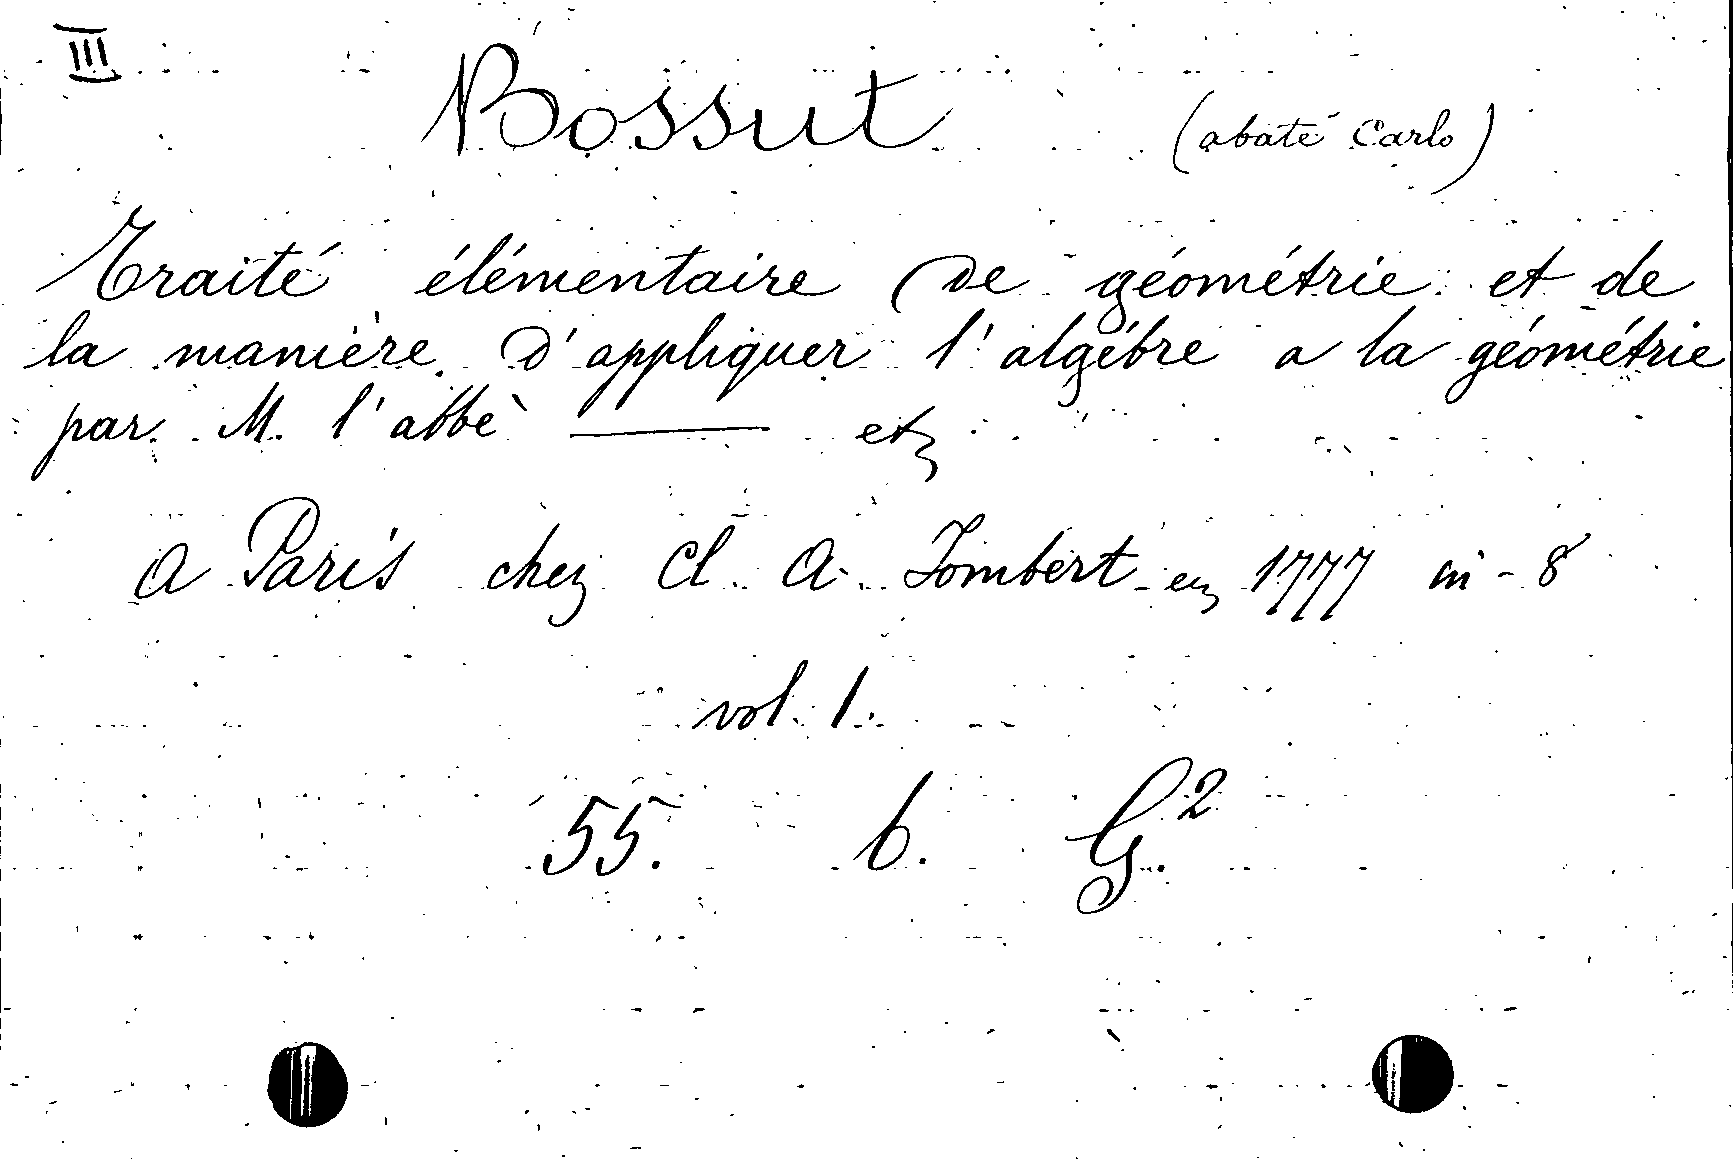 III
Bossut (abate Carlo)
Traité élémentaire de géométrie et de
la manière d'appliquer l'algébre a la géométrie
par M. l'abbè ——— etz
a Paris chez Cl. A. Jombert en 1777 in-8
vol. 1.
55. 6. G.²